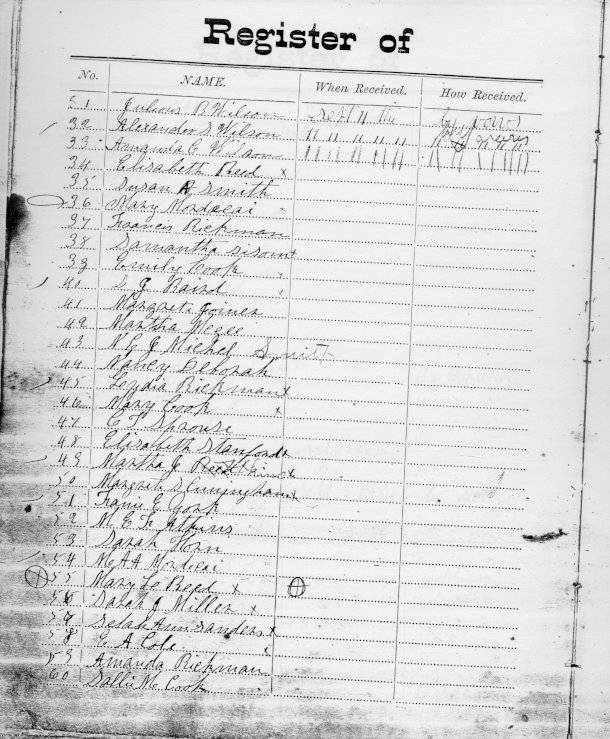 Register of
No. NAME. When Received. How Received.
31 Julious B Wilson Sept 11
32 Alexander S Wilson " " " " "
33 Amanda E Wilson
34 Elizabeth Reed x
35 Susan A Smith
36 Mary Mordecai
37 Frances Rickman
38 Samantha Sisom x
39 Emily Cook
40 S J Baird
41 Margret Joiner
42 Martha Megee
43 N E J Michel Smith
44 Nancy Deborah
45 Lydia Rickman x
46 Mary Cook x
47 E T Sprouse
48 Elizabeth Stanford x
49 Martha J Reed x
50 Margaret S Cunningham x
51 Fanie E York
52 M. E. F. Atkins
53 Sarah Horn
54 M. A A Mordecai
55 Mary Le Reed x
56 Sarah J Miller x
57 Selah Ann Sanders x
58 E A Cole
59 Amanda Rickman
60 Sallie M Cook